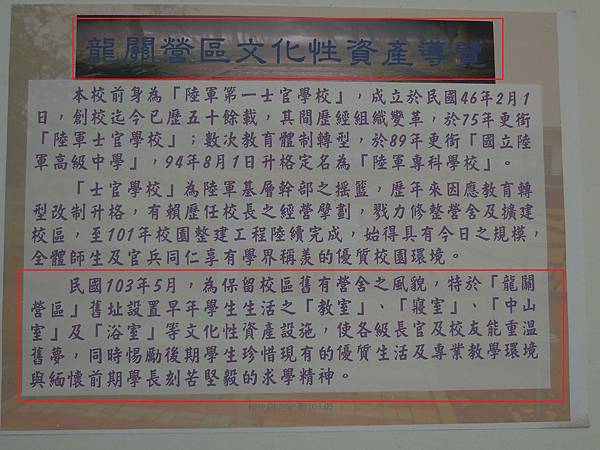 龍關營區文化性資產導覽
本校前身為「陸軍第一士官學校」，成立於民國46年2月1
日，創校迄今已歷五十餘載，其間歷經組織變革，於75年更銜
「陸軍士官學校」；數次教育體制轉型，於89年更銜「國立陸
軍高級中學」，94年8月1日升格定名為「陸軍專科學校」。
「士官學校」為陸軍基層幹部之搖籃，歷年來因應教育轉
型改制升格，有賴歷任校長之經營擘劃，戮力修整營舍及擴建
校區，至101年校園整建工程陸續完成，始得具有今日之規模，
全體師生及官兵同仁享有學界稱羨的優質校園環境。
民國103年5月，為保留校區舊有營舍之風貌，特於「龍關
營區」舊址設置早年學生生活之「教室」、「寢室」、「中山
室」及「浴室」等文化性資產設施，使各級長官及校友能重溫
舊夢，同時惕勵後期學生珍惜現有的優質生活及專業教學環境
與緬懷前期學長刻苦堅毅的求學精神。